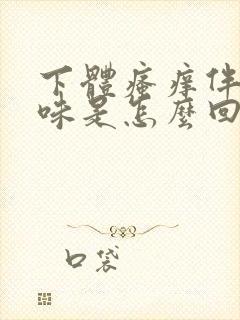 下體瘙癢伴
味是怎麼回
口袋